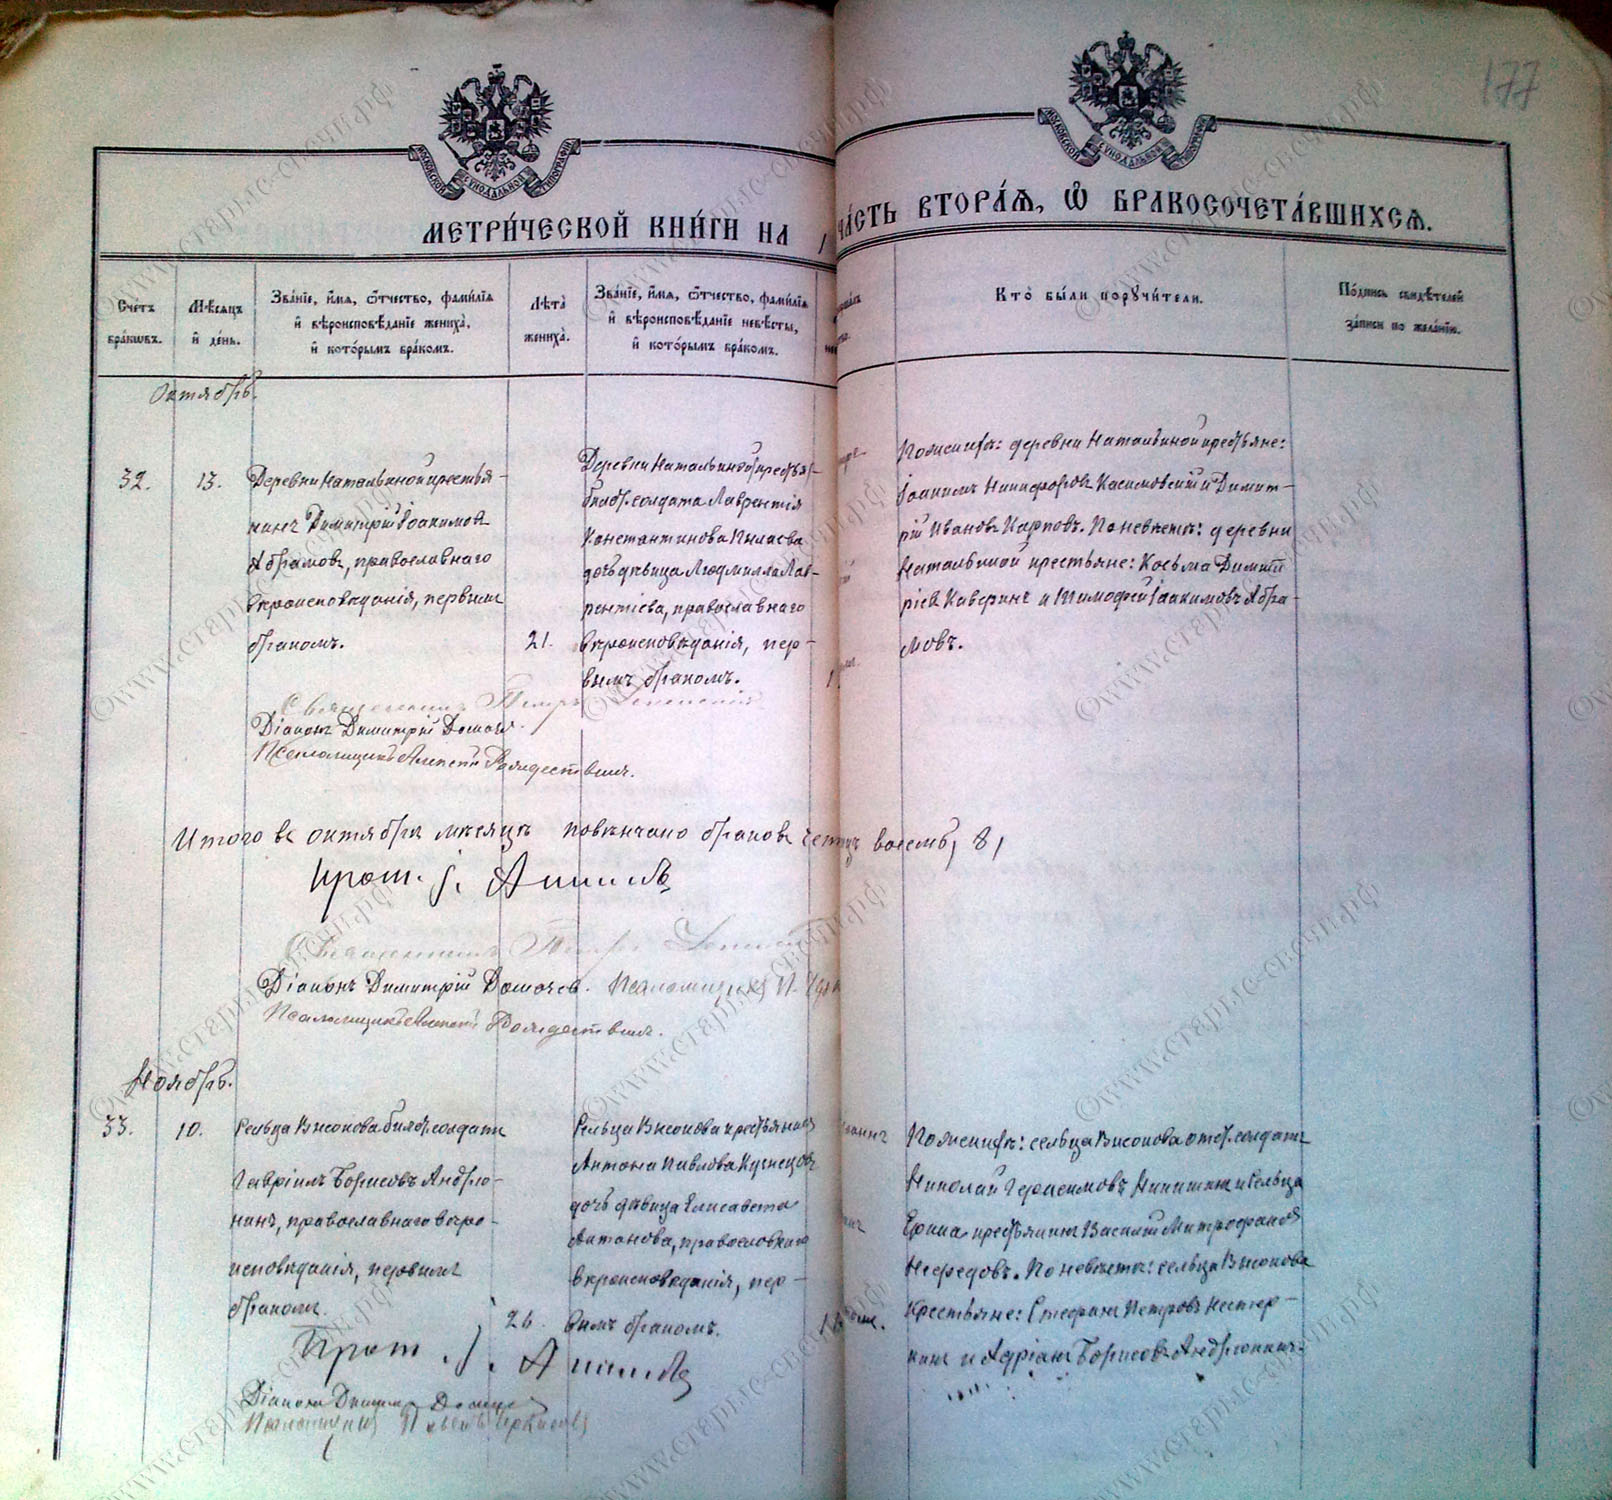 177
МОСКОВСКОЙ СѴНОДАЛЬНОЙ ТИПОГРАФІИ
МОСКОВСКОЙ СѴНОДАЛЬНОЙ ТИПОГРАФІИ
МЕТРИ́ЧЕСКОЙ КНИ́ГИ НА 1
ЧА́СТЬ ВТОРА́Я, Ѿ БРАКОСОЧЕТА́ВШИХСЯ.
Сче́тъ бра́кѡвъ.
Мѣ́сяцъ и́ де́нь.
Зва́нїе, и́мя, ѻ́тчество, фами́лїя и́ вѣроисповѣ́данїе жениха̀, и́ кото́рымъ бра́комъ.
Лѣта̀ жениха̀.
Зва́нїе, и́мя, ѻ́тчество, фами́лїя и́ вѣроисповѣ́данїе невѣ́сты, и́ кото́рымъ бра́комъ.
Кто̀ бы́ли порꙋчи́тели.
По́дпись свидѣ́телей за́писи по жела́нїю.
Октябрь.
32.
13.
Деревни Натальиной крестья-
нинъ Димитрій Іоакимовъ
Абрамовъ, православнаго
вѣроисповѣданія, первымъ
бракомъ.
21.
Деревни Натальиной крестья-
билет. солдата Лаврентія
Константинова
дочь дѣвица Людмилла Лав-
рентіева, православнаго
вѣроисповѣданія, пер-
вымъ бракомъ.
По женихѣ: деревни Натальиной крестьяне:
Іоакимъ Никифоровъ Касимовскій и Димит-
рій Ивановъ Карповъ. По невѣстѣ: деревни
Натальиной крестьяне: Косьма Димит
ріевъ Каверинъ и Тимофей Іоакимовъ Абра-
мовъ.
Священникъ Петръ
Діаконъ Димитрій Домачев.
Псаломщикъ Алексѣй Рождествинъ.
Итого въ октябрѣ мѣсяцѣ повѣнчано браковъ восемь, 8,
Прот. І.
Священникъ Петр
Діаконъ Димитрій Домачев. Псаломщикъ П.
Псаломщикъ Алексѣй Рождествинъ.
Ноябрь.
33.
10.
Сельца Высокова билет. солдатъ
Гавріилъ Борисовъ Андро-
нинъ, православнаго вѣро-
исповѣданія, первымъ
бракомъ.
26.
Сельца Высокова крестьянина
Антона Павлова Кузнецова
дочь дѣвица Елисавета
Антонова, православнаго
вѣроисповѣданія, пер-
вымъ бракомъ.
По женихѣ: сельца Высокова отст. солдатъ
Николай Герасимовъ Никишинъ и сельца
крестьянинъ Василій Митрофановъ
Нефедовъ. По невѣстѣ: сельца Высокова
крестьяне: Стефанъ Петровъ Нестер-
кинъ и Адріанъ Борисовъ Андронинъ.
Прот. І.
Діаконъ Димитр
Псаломщикъ Павелъ
©www.старыс-свсчи.рф